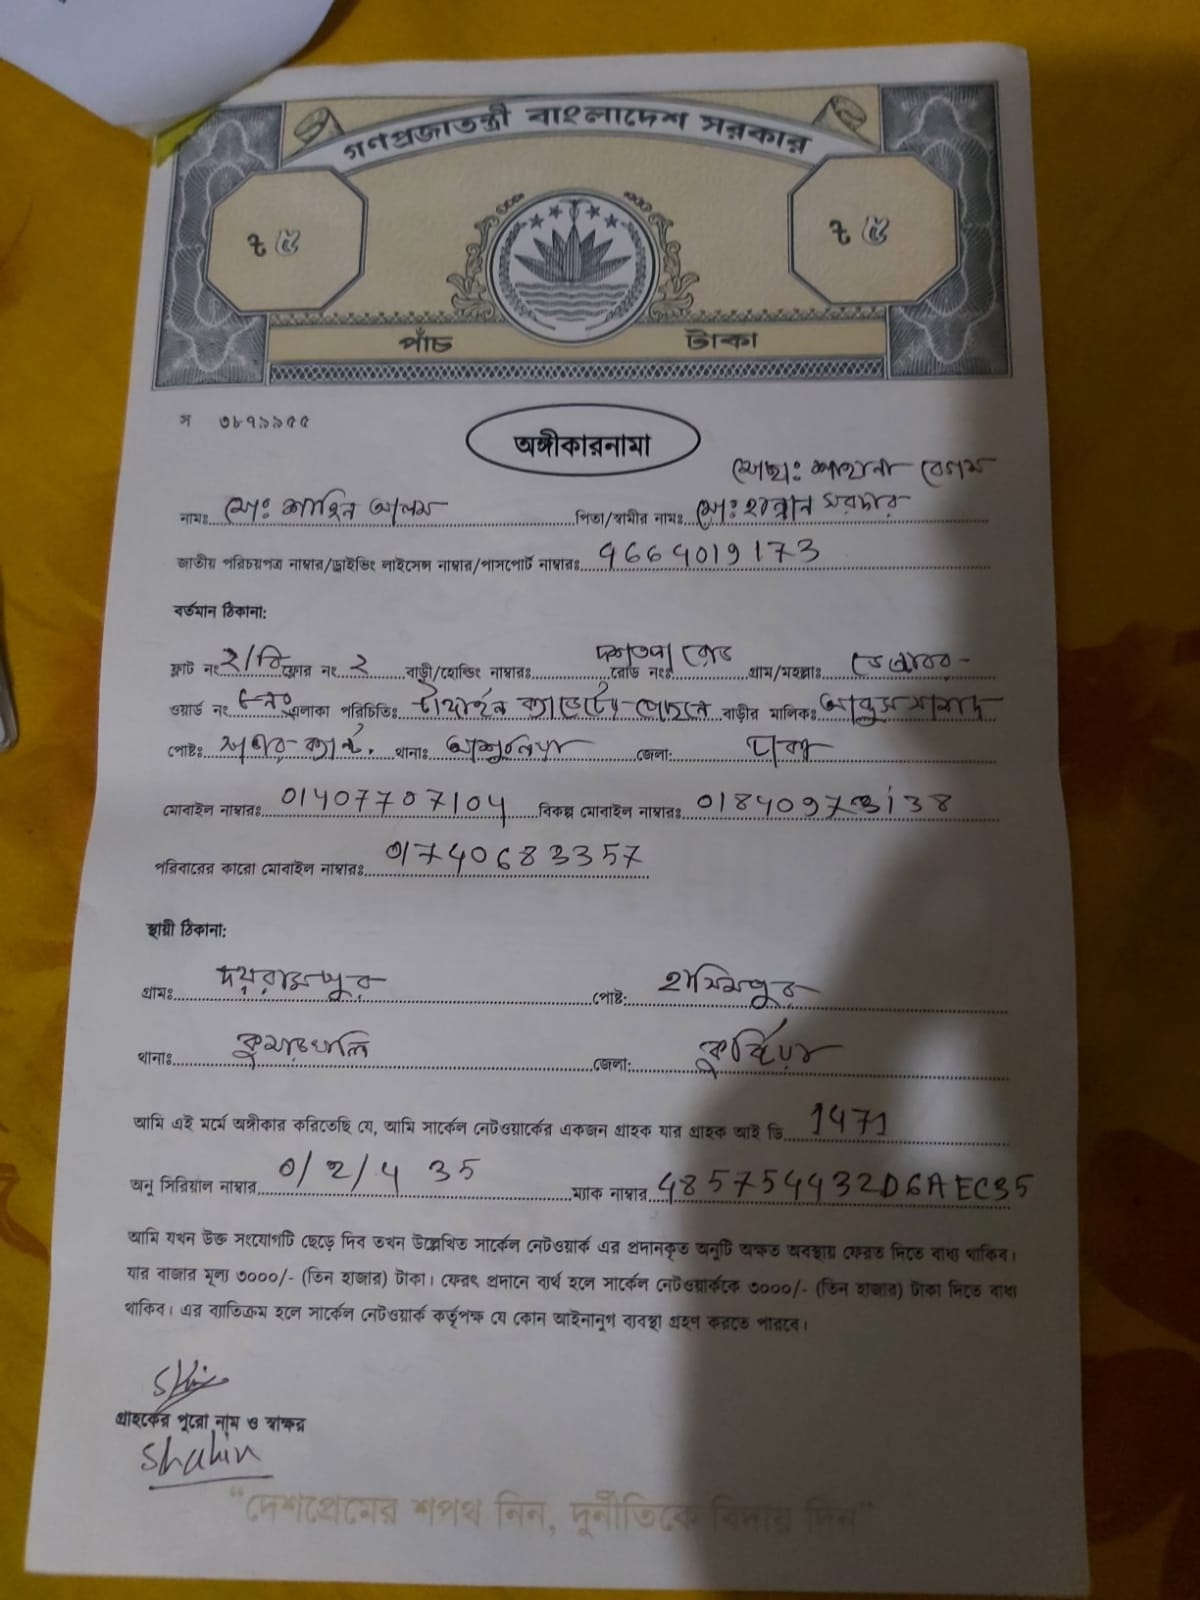 গণপ্রজাতন্ত্রী বাংলাদেশ সরকার
৳ ৫ ৳ ৫
পাঁচ টাকা
স ৩৮৭১৯৫৫
অঙ্গীকারনামা
মোছা: শাহানা বেগম
নামঃ মোঃ শাহিন আলম পিতা/স্বামীর নামঃ মোঃ হান্নান সরদার
জাতীয় পরিচয়পত্র নাম্বার/ড্রাইভিং লাইসেন্স নাম্বার/পাসপোর্ট নাম্বারঃ 9664019173
বর্তমান ঠিকানা:
ফ্লাট নং ২/বি ফ্লোর নং ২ বাড়ী/হোল্ডিং নাম্বারঃ রোড নংঃ গ্রাম/মহল্লাঃ
ওয়ার্ড নং এলাকা পরিচিতিঃ পেছনে বাড়ীর মালিকঃ আব্দুস সামাদ
পোষ্টঃ থানাঃ আশুলিয়া জেলা: ঢাকা
মোবাইল নাম্বারঃ 01407707104 বিকল্প মোবাইল নাম্বারঃ
পরিবারের কারো মোবাইল নাম্বারঃ 01740683357
স্থায়ী ঠিকানা:
গ্রামঃ দয়রামপুর পোষ্ট: হাসিমপুর
থানাঃ কুমারখালি জেলা: কুষ্টিয়া
আমি এই মর্মে অঙ্গীকার করিতেছি যে, আমি সার্কেল নেটওয়ার্কের একজন গ্রাহক যার গ্রাহক আই ডি 1471
অনু সিরিয়াল নাম্বার 0/2/4 35 ম্যাক নাম্বার 485754432D6AEC35
আমি যখন উক্ত সংযোগটি ছেড়ে দিব তখন উল্লেখিত সার্কেল নেটওয়ার্ক এর প্রদানকৃত অনুটি অক্ষত অবস্থায় ফেরত দিতে বাধ্য থাকিব।
যার বাজার মূল্য ৩০০০/- (তিন হাজার) টাকা। ফেরৎ প্রদানে ব্যর্থ হলে সার্কেল নেটওয়ার্ককে ৩০০০/- (তিন হাজার) টাকা দিতে বাধ্য
থাকিব। এর ব্যাতিক্রম হলে সার্কেল নেটওয়ার্ক কর্তৃপক্ষ যে কোন আইনানুগ ব্যবস্থা গ্রহণ করতে পারবে।
গ্রাহকের পুরো নাম ও স্বাক্ষর
Shahin
"দেশপ্রেমের শপথ নিন, দুর্নীতিকে বিদায় দিন"